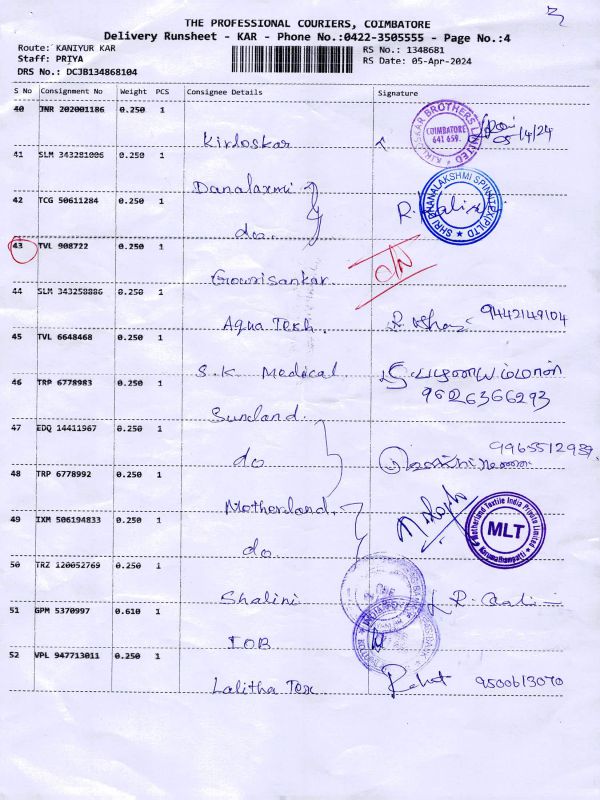 THE PROFESSIONAL COURIERS, COIMBATORE
Delivery Runsheet - KAR - Phone No.:0422-3505555 - Page No.:4
Route: KANIYUR KAR
RS No.: 1348681
Staff: PRIYA
RS Date: 05-Apr-2024
DRS No.: DCJB134868104
S No Consignment No Weight PCS Consignee Details Signature
40 JNR 202001186 0.250 1
Kirloskar
KIRLOSKAR BROTHERS LIMITED
COIMBATORE
641 659.
41 SLM 343281006 0.250 1
Danalaxmi
42 TCG 50611284 0.250 1
do..
43 TVL 908722 0.250 1
Gowrisankar
44 SLM 343258886 0.250 1
Aqua Tech. 9442149104
45 TVL 6648468 0.250 1
S.K Medical
9626366293
46 TRP 6778983 0.250 1
Sunland
47 EDQ 14411967 0.250 1
do
48 TRP 6778992 0.250 1
Motherland.
49 IXM 506194833 0.250 1
do
Motherland Textile India Private Limited
MLT
50 TRZ 120052769 0.250 1
Shalini
51 GPM 5370997 0.610 1
IOB
52 VPL 947713011 0.250 1
Lalitha Tex 9500613070